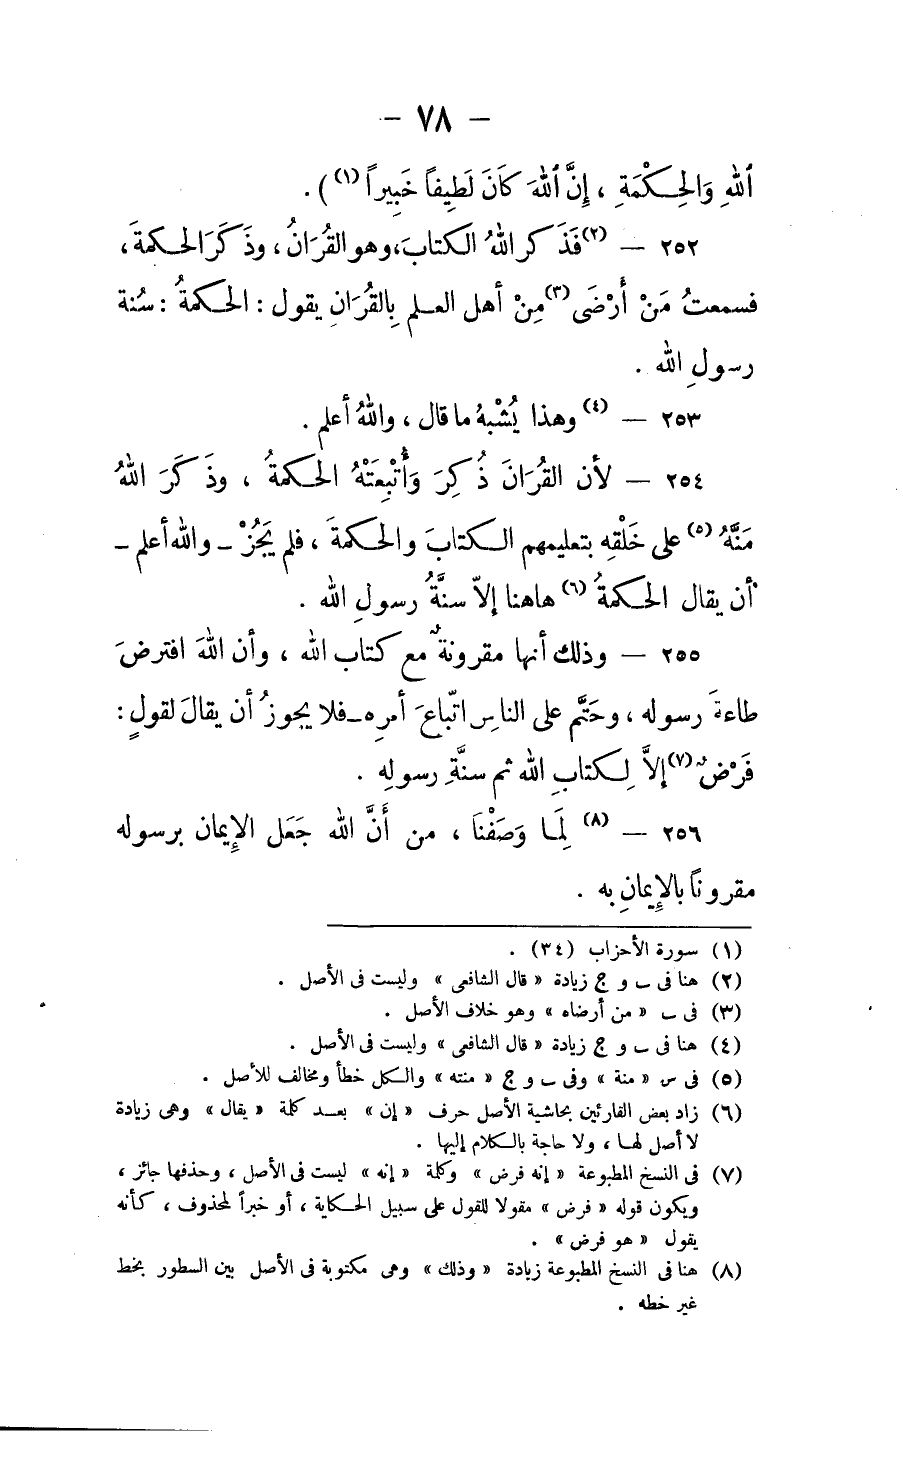 — ٧٨ —
ٱللهِ وَالحِكْمَةِ ، إِنَّ ٱللهَ كَانَ لَطِيفاً خَبِيراً (١) ) .
٢٥٢ — (٢) فَذَكر اللهُ الكتابَ، وهو القُرَانُ، وذَكَرَ الحكمةَ،
فسمعتُ مَنْ أَرْضَى (٣) مِنْ أهل العلم بِالقُرَانِ يقول : الحكمةُ : سُنة
رسولِ الله .
٢٥٣ — (٤) وهذا يُشْبهُ ما قال ، واللهُ أعلم .
٢٥٤ — لأن القُرَانَ ذُكِرَ وَأُتْبِعَتْهُ الحكمةُ ، وذَكَرَ اللهُ
مَنَّهُ (٥) على خَلْقِه بتعليمهم الكتابَ والحكمةَ ، فلم يَجُزْ ــ والله أعلم ــ
أن يقال الحكمةُ (٦) هاهنا إلاّ سنَّةُ رسولِ الله .
٢٥٥ — وذلك أنها مقرونةٌ مع كتاب الله ، وأن اللهَ افترضَ
طاعةَ رسوله ، وحَتَّم على الناسِ اتّباعَ أمرِه ــ فلا يجوزُ أن يقالَ لقولٍ :
فَرْضٌ (٧) إلاَّ لِكتابِ الله ثم سنَّةِ رسولِه .
٢٥٦ — (٨) لِمَا وَصَفْنَا ، من أَنَّ الله جَعَل الإِيمان برسوله
مقروناً بالإِيمانِ به .
(١) سورة الأحزاب (٣٤) .
(٢) هنا فى ب و ج زيادة « قال الشافعى » وليست فى الأصل .
(٣) فى ب « من أرضاه » وهو خلاف الأصل .
(٤) هنا فى ب و ج زيادة « قال الشافعى » وليست فى الأصل .
(٥) فى س « منة » وفى ب و ج « منته » والكل خطأ ومخالف للأصل .
(٦) زاد بعض القارئين بحاشية الأصل حرف « إن » بعد كلمة « يقال » وهى زيادة
لا أصل لها ، ولا حاجة بالكلام إليها .
(٧) فى النسخ المطبوعة « إنه فرض » وكلمة « إنه » ليست فى الأصل ، وحذفها جائز ،
ويكون قوله « فرض » مقولا للقول على سبيل الحكاية ، أو خبراً لمحذوف ، كأنه
يقول « هو فرض » .
(٨) هنا فى النسخ المطبوعة زيادة « وذلك » وهى مكتوبة فى الأصل بين السطور بخط
غير خطه .